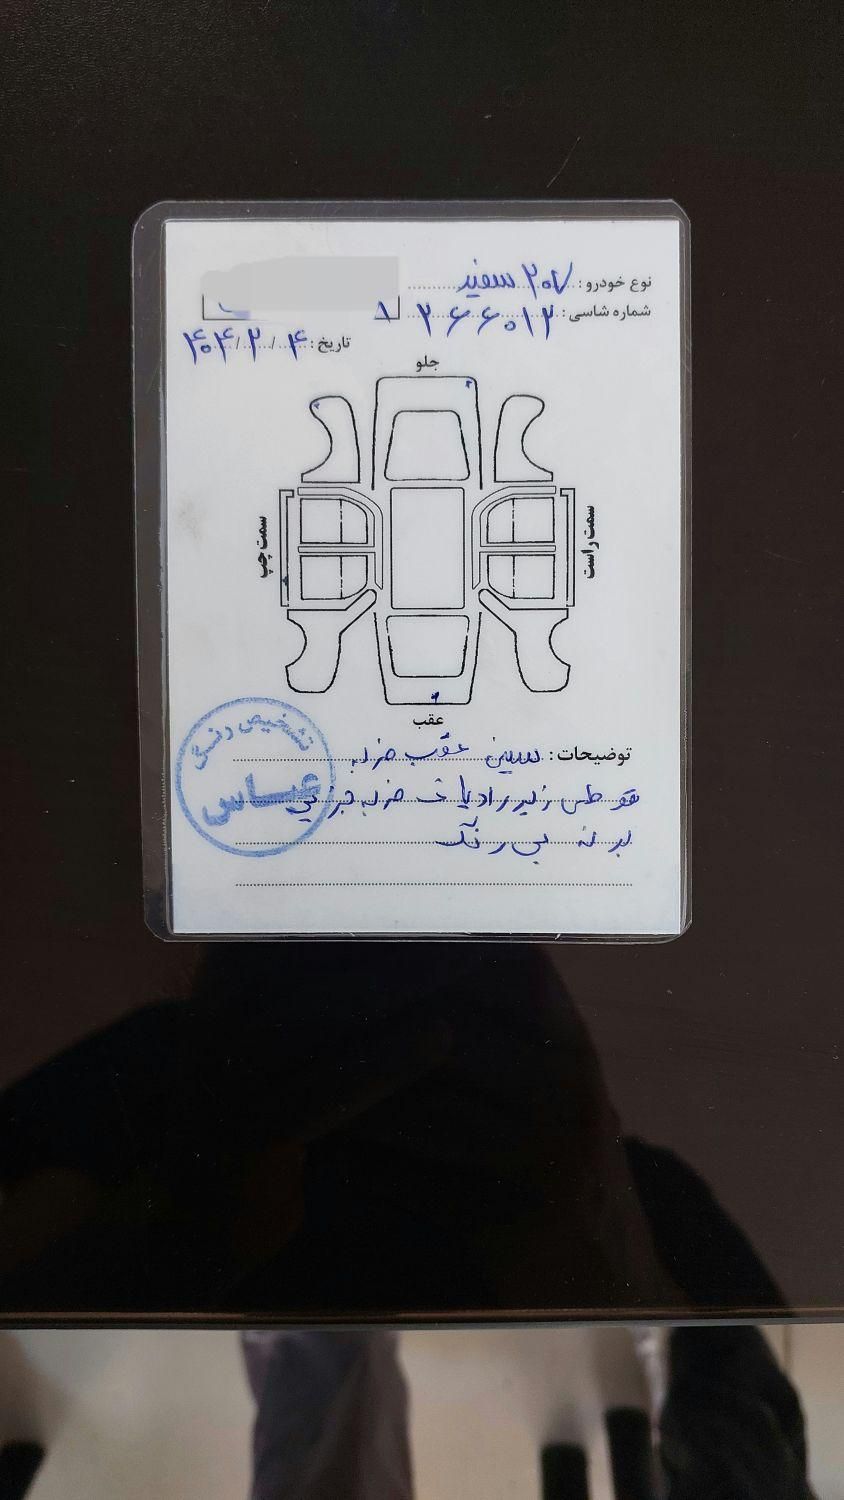 نوع خودرو: ۲۰۷ سفید
شماره شاسی: ۲۶۶۰۱۲
۸
تاریخ: ۴ / ۲ / ۴۰۴
جلو
سمت چپ
سمت راست
عقب
توضیحات: سینی عقب ضربه
قوطی زیر رادیات ضربه جزئی
بدنه بی رنگ
تشخیص رنگ
عباس